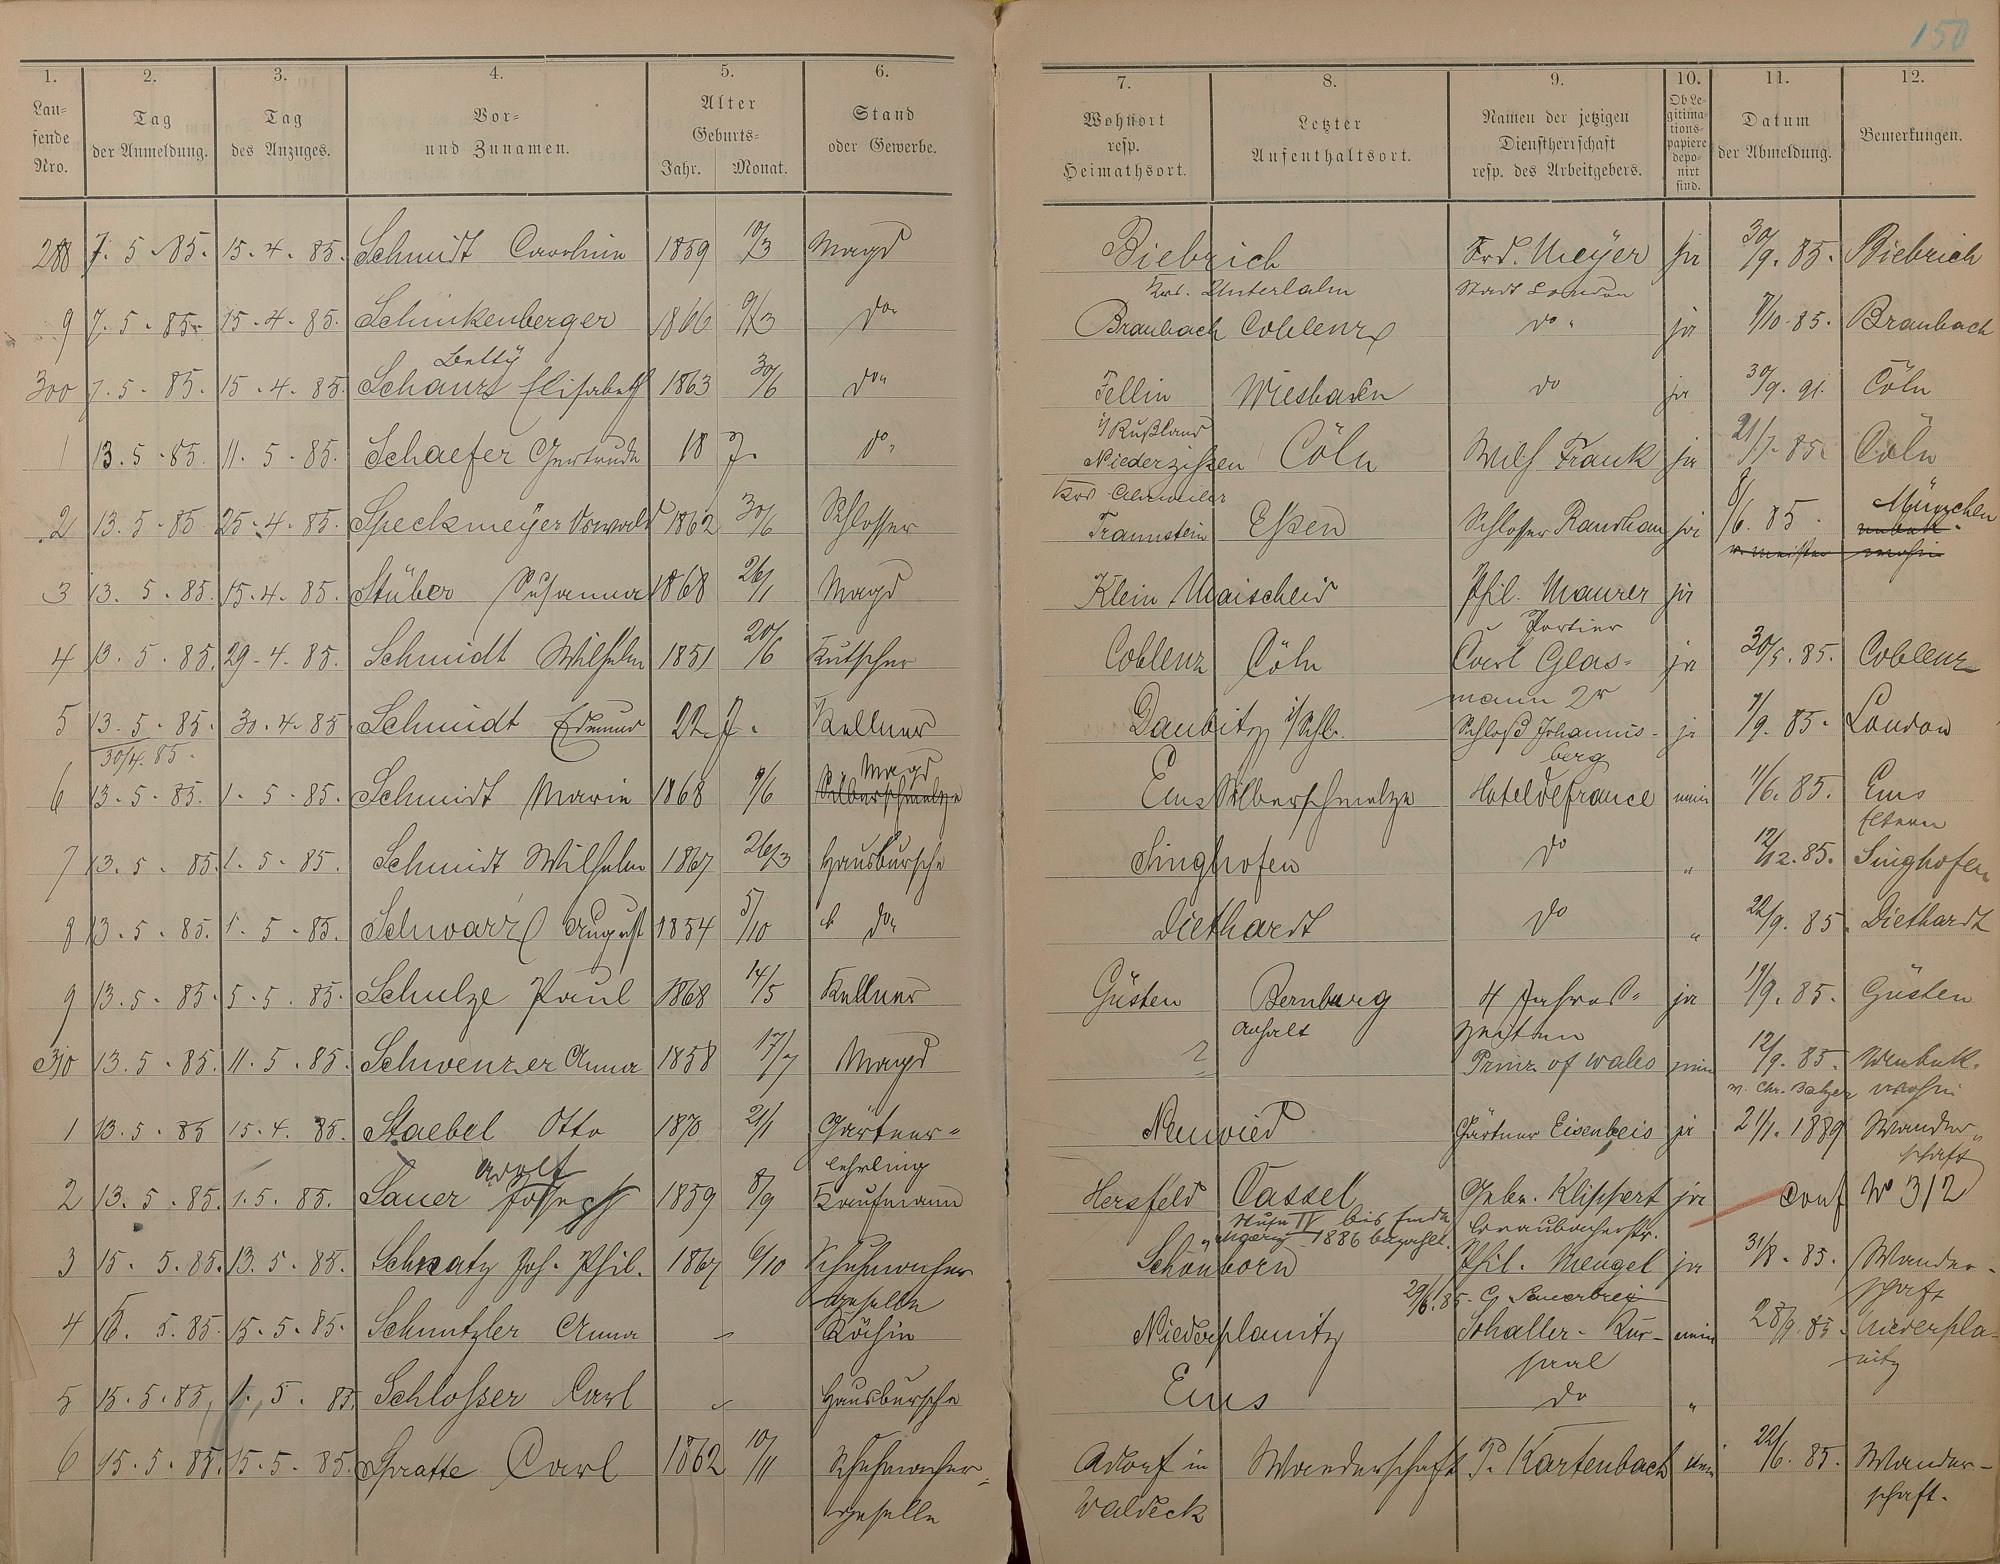 150
1. 2. 3. 4. 5. 6. 7. 8. 9. 10. 11. 12.
Lau-
fende
Nro.
Tag
der Anmeldung.
Tag
des Anzuges.
Vor-
und Zunamen.
Alter
Geburts-
Jahr. Monat.
Stand
oder Gewerbe.
Wohnort
resp.
Heimathsort.
Letzter
Aufenthaltsort.
Namen der jetzigen
Dienstherrschaft
resp. des Arbeitgebers.
Ob Le-
gitima-
tions-
papiere
depo-
nirt
sind.
Datum
der Abmeldung.
Bemerkungen.
288 7. 5. 85. 15. 4. 85. Schmidt Carolnie 1859 10/3 Magd Biebrich Frd. Meyer ja 30/9. 85. Biebrich
Krs. Unterlahn Stadt London
9 7. 5. 85. 15. 4. 85. Schinkenberger 1866 9/3 do Braubach Coblenz do ja 8/10 85. Braubach
Betty
300 7. 5. 85. 15. 4. 85. Schanz Elisabeth 1863 30/6 do Fellin Wiesbaden do ja 30/9. 91. Cöln
i/ Rußland
1 13. 5. 85. 11. 5. 85. Schaefer Gertrude 18 J. do Niederzißen Cöln Wilh Frank ja 21/7. 85. Cöln
Krs Ahrweiler
2 13. 5. 85. 25. 4. 85. Speckmeyer Oswald 1862 30/6 Schlosser Traunstein Eßen Schlosser ja 8/6. 85. München
3 13. 5. 85. 15. 4. 85. Stüber Susanna 1868 26/1 Magd Klein Maischeid Phil. Maurer ja
Portier
4 13. 5. 85. 29. 4. 85. Schmidt Wilhelm 1851 20/6 Kutscher Coblenz Cöln Carl Glas- ja 30/5. 85. Coblenz
mann 2r
5 13. 5. 85. 30. 4. 85 Schmidt Edmund 22. J. Kellner Daubitz i/Schl. Schloß Johannis- ja 7/9. 85. London
30/4. 85. berg
Magd
6 13. 5. 85. 1. 5. 85. Schmidt Marie 1868 9/6 Silberschmelze Ems Silberschmelze Hotel de france nein 11/6. 85. Ems
Eltern
7 13. 5. 85. 1. 5. 85. Schmidt Wilhelm 1867 26/3 Hausbursche Singhofen do " 12/12. 85. Singhofen
8 13. 5. 85. 1. 5. 85. Schwarz August 1854 5/10 do Diethardt do " 22/9. 85. Diethardt
9 13. 5. 85. 5. 5. 85. Schulze Paul 1868 14/5 Kellner Güsten Bernburg 4 Jahres- ja 19/9. 85. Güsten
Anhalt zeiten
310 13. 5. 85. 11. 5. 85. Schwenzer Anna 1858 17/7 Magd ? Prinz of wales nein 12/9. 85. Unbek.
n. Chr. Balzer wohin
1 13. 5. 85 15. 4. 85. Staebel Otto 1870 21/1 Gärtner- Neuwied Gärtner Eisenbeis ja 21/1. 1889 Wander-
lehrling schaft
Adolf
2 13. 5. 85. 1. 5. 85. Sauer Joseph 1859 8/9 Kaufmann Hersfeld Cassel Gebr. Klippert ja Conf No 312
Stufe IV bis Ende Braubacherstr.
1886 bezahlt.
3 15. 5. 85. 13. 5. 85. Schnatz Joh. Phil. 1867 6/10 Schuhmacher Schönborn Phil. Mengel ja 31/8. 85. Wander-
geselle 29/6. 85. G Sauerbrei schaft
4 15. 5. 85. 15. 5. 85. Schnutzler Anna Köchin Niederplanitz Schaller- Kur- nein 28/9. 85. Niederpla-
saal nitz
5 15. 5. 85, 1. 5. 85. Schlosser Carl Hausbursche Ems do "
6 15. 5. 85. 15. 5. 85. Spratte Carl 1862 10/11 Schuhmacher- Adorf in Wanderschaft P. Kartenbach nein 22/6. 85. Wander-
geselle Waldeck schaft.